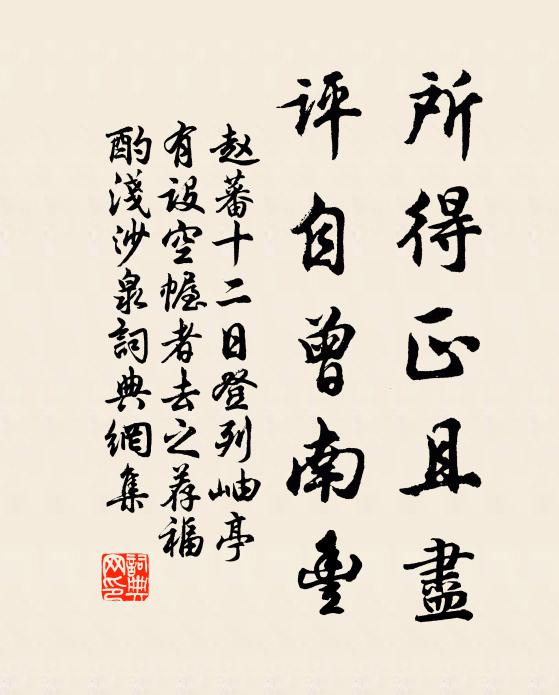 所得正且盡
評自曾南豐
赵蕃十二日登列岫亭
有设空幄者去之荐福
酌淺沙泉詞典網集
詞典網印